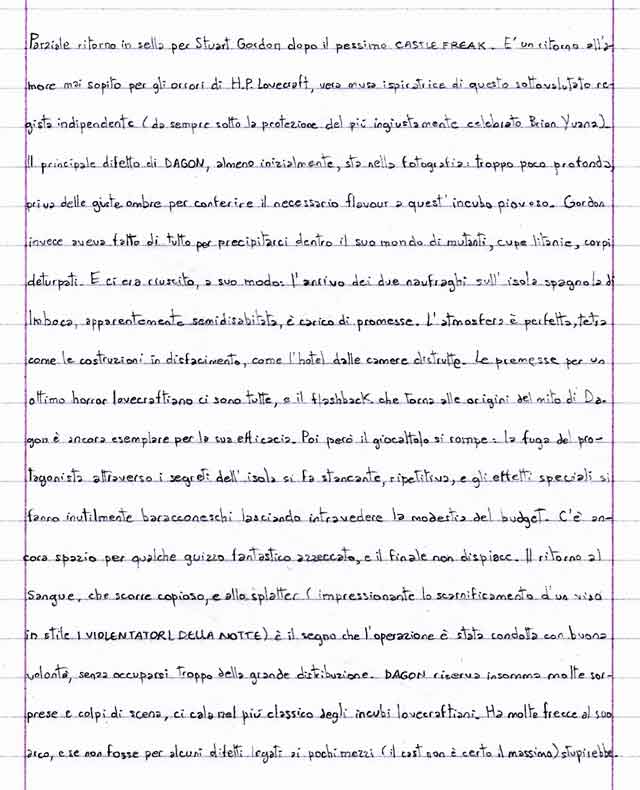 Parziale ritorno in sella per Stuart Gordon dopo il pessimo CASTLE FREAK. E' un ritorno all'a-
more mai sopito per gli orrori di H.P. Lovecraft, vera musa ispiratrice di questo sottovalutato re-
gista indipendente (da sempre sotto la protezione del più ingiustamente celebrato Brian Yuzna).
Il principale difetto di DAGON, almeno inizialmente, sta nella fotografia: troppo poco profonda,
priva delle giuste ombre per conferire il necessario flavour a quest' incubo piovoso. Gordon
invece aveva fatto di tutto per precipitarci dentro il suo mondo di mutanti, cupe litanie, corpi
deturpati. E ci era riuscito, a suo modo: l'arrivo dei due naufraghi sull' isola spagnola di
Imboca, apparentemente semidisabitata, è carico di promesse. L'atmosfera è perfetta, tetra
come le costruzioni in disfacimento, come l'hotel dalle camere distrutte. Le premesse per un
ottimo horror lovecraftiano ci sono tutte, e il flashback che torna alle origini del mito di Da-
gon è ancora esemplare per la sua efficacia. Poi però il giocattolo si rompe: la fuga del pro-
tagonista attraverso i segreti dell' isola si fa stancante, ripetitiva, e gli effetti speciali si
fanno inutilmente baracconeschi lasciando intravedere la modestia del budget. C'è an-
cora spazio per qualche guizzo fantastico azzeccato, e il finale non dispiace. Il ritorno al
Sangue, che scorre copioso, e allo splatter (impressionante lo scarnificamento d'un viso
in stile I VIOLENTATORI DELLA NOTTE) è il segno che l'operazione è stata condotta con buona
volontà, senza occuparsi troppo della grande distribuzione. DAGON riserva insomma molte sor-
prese e colpi di scena, ci cala nel più classico degli incubi lovecraftiani. Ha molte frecce al suo
arco, e se non fosse per alcuni difetti legati ai pochi mezzi (il cast non è certo il massimo) stupirebbe.